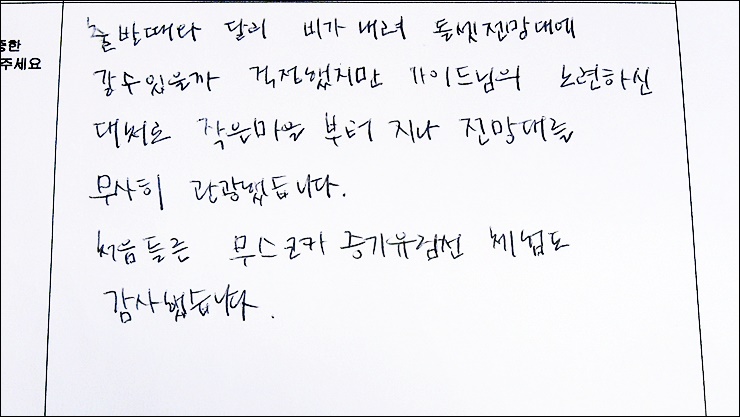 중한
주세요
출발때와 달리 비가 내려 돌셋전망대에
갈수있을까 걱정했지만 가이드님의 노련하신
대처로 작은마을 부터 지나 전망대를
무사히 관광했습니다.
처음 들른 무스코카 증기유람선 체험도
감사했습니다.